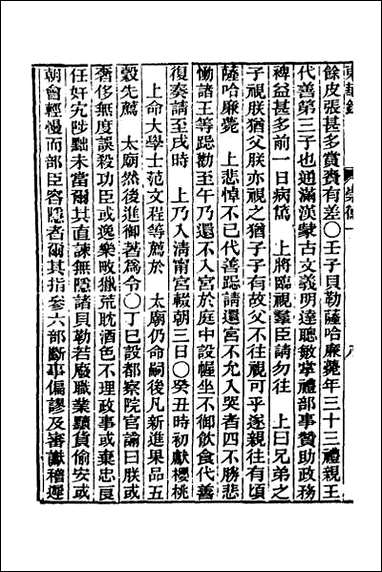 東華錄 崇德一 八
餘皮張甚多賞賚有差○壬子貝勒薩哈廉薨年三十三禮親王
代善第三子也通滿漢蒙古文義明達聰敏掌禮部事贊助政務
裨益甚多前一日病篤 上將臨視羣臣請勿往 上曰兄弟之
子視朕猶父朕亦視之猶子子有故父不往視可乎遂親往有頃
薩哈廉薨 上悲悼不已代善跽請還宮不允入哭者四不勝悲
慟諸王等跽勸至午乃還不入宮於庭中設幄坐不御飲食代善
復奏請至戌時 上乃入淸甯宮輟朝三日○癸丑時初獻櫻桃
上命大學士范文程等薦於 太廟仍命嗣後凡新進果品五
穀先薦 太廟然後進御著爲令○丁巳設都察院官諭曰朕或
奢侈無度誤殺功臣或逸樂畋獵荒躭酒色不理政事或棄忠良
任奸宄陟黜未當爾其直諫無隱諸貝勒若廢職業黷貨偷安或
朝會輕慢而部臣容隱者爾其指參六部斷事偏謬及審讞稽遲